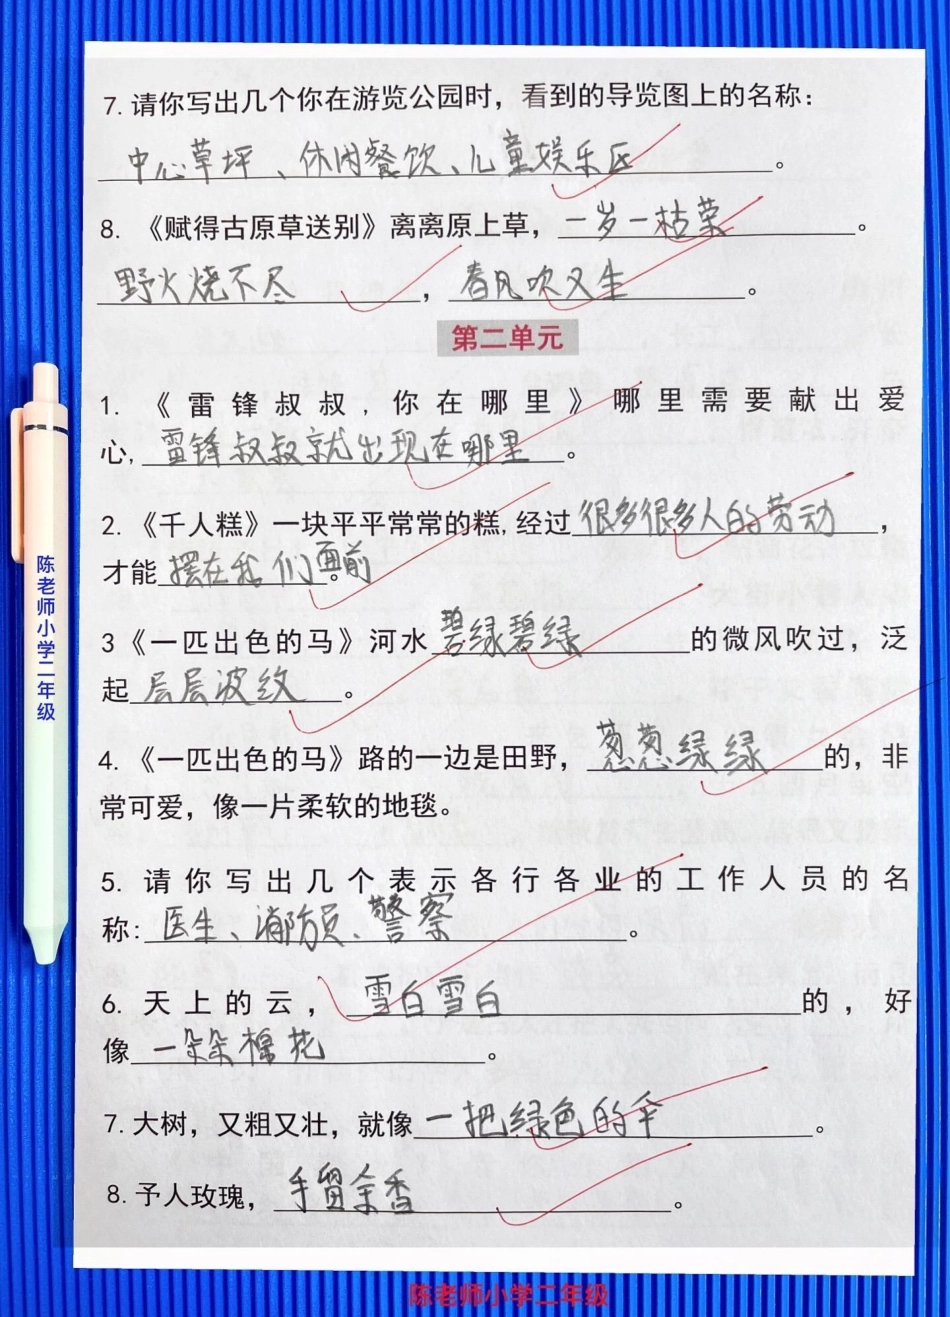 7. 请你写出几个你在游览公园时，看到的导览图上的名称：
中心草坪、休闲餐饮、儿童娱乐区。
8. 《赋得古原草送别》离离原上草，一岁一枯荣。
野火烧不尽，春风吹又生。
第二单元
1. 《雷锋叔叔，你在哪里》哪里需要献出爱
心，雷锋叔叔就出现在哪里。
2. 《千人糕》一块平平常常的糕，经过很多很多人的劳动，
才能摆在我们面前。
3《一匹出色的马》河水碧绿碧绿的微风吹过，泛
起层层波纹。
4. 《一匹出色的马》路的一边是田野，葱葱绿绿的，非
常可爱，像一片柔软的地毯。
5. 请你写出几个表示各行各业的工作人员的名
称：医生、消防员、警察。
6. 天上的云，雪白雪白的，好
像一朵朵棉花。
7. 大树，又粗又壮，就像一把绿色的伞。
8. 予人玫瑰，手留余香。
陈老师小学二年级
陈老师小学二年级